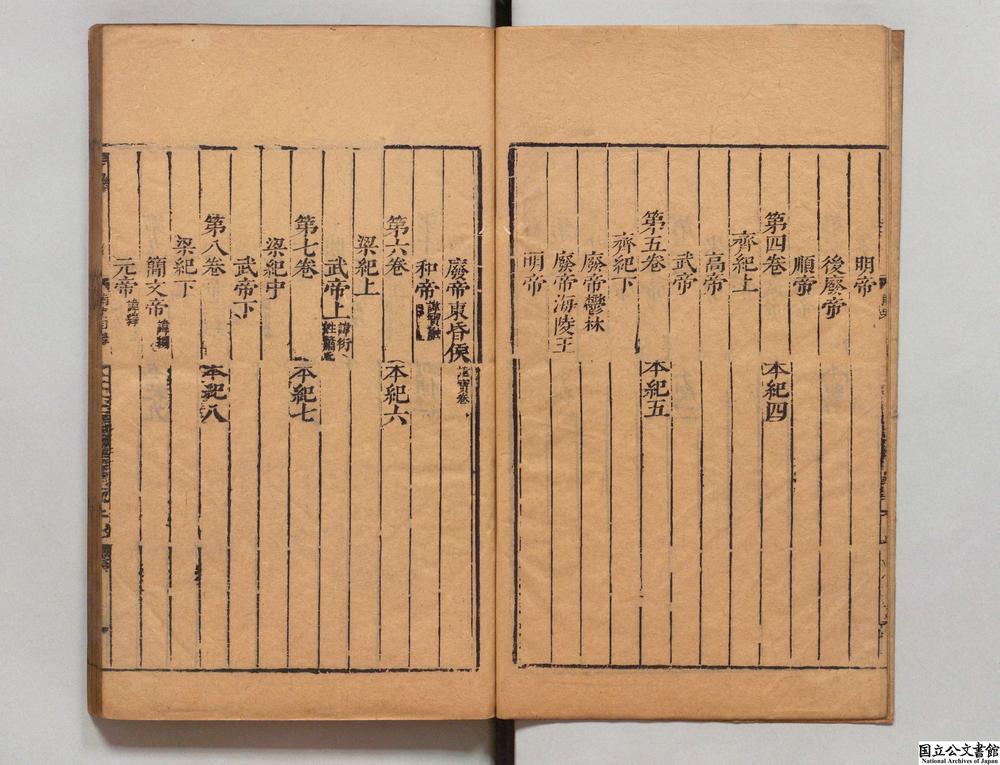 明帝
後廢帝
順帝
第四卷 本紀四
齊紀上
高帝
武帝
第五卷 本紀五
齊紀下
廢帝鬱林
廢帝海陵王
明帝
廢帝東昏侯 諱寶卷
和帝 諱寶融
第六卷 本紀六
梁紀上
武帝上 諱衍 姓蕭氏
第七卷 本紀七
梁紀中
武帝下
第八卷 本紀八
梁紀下
簡文帝 諱綱
元帝 諱繹
国立公文書館
National Archives of Japan